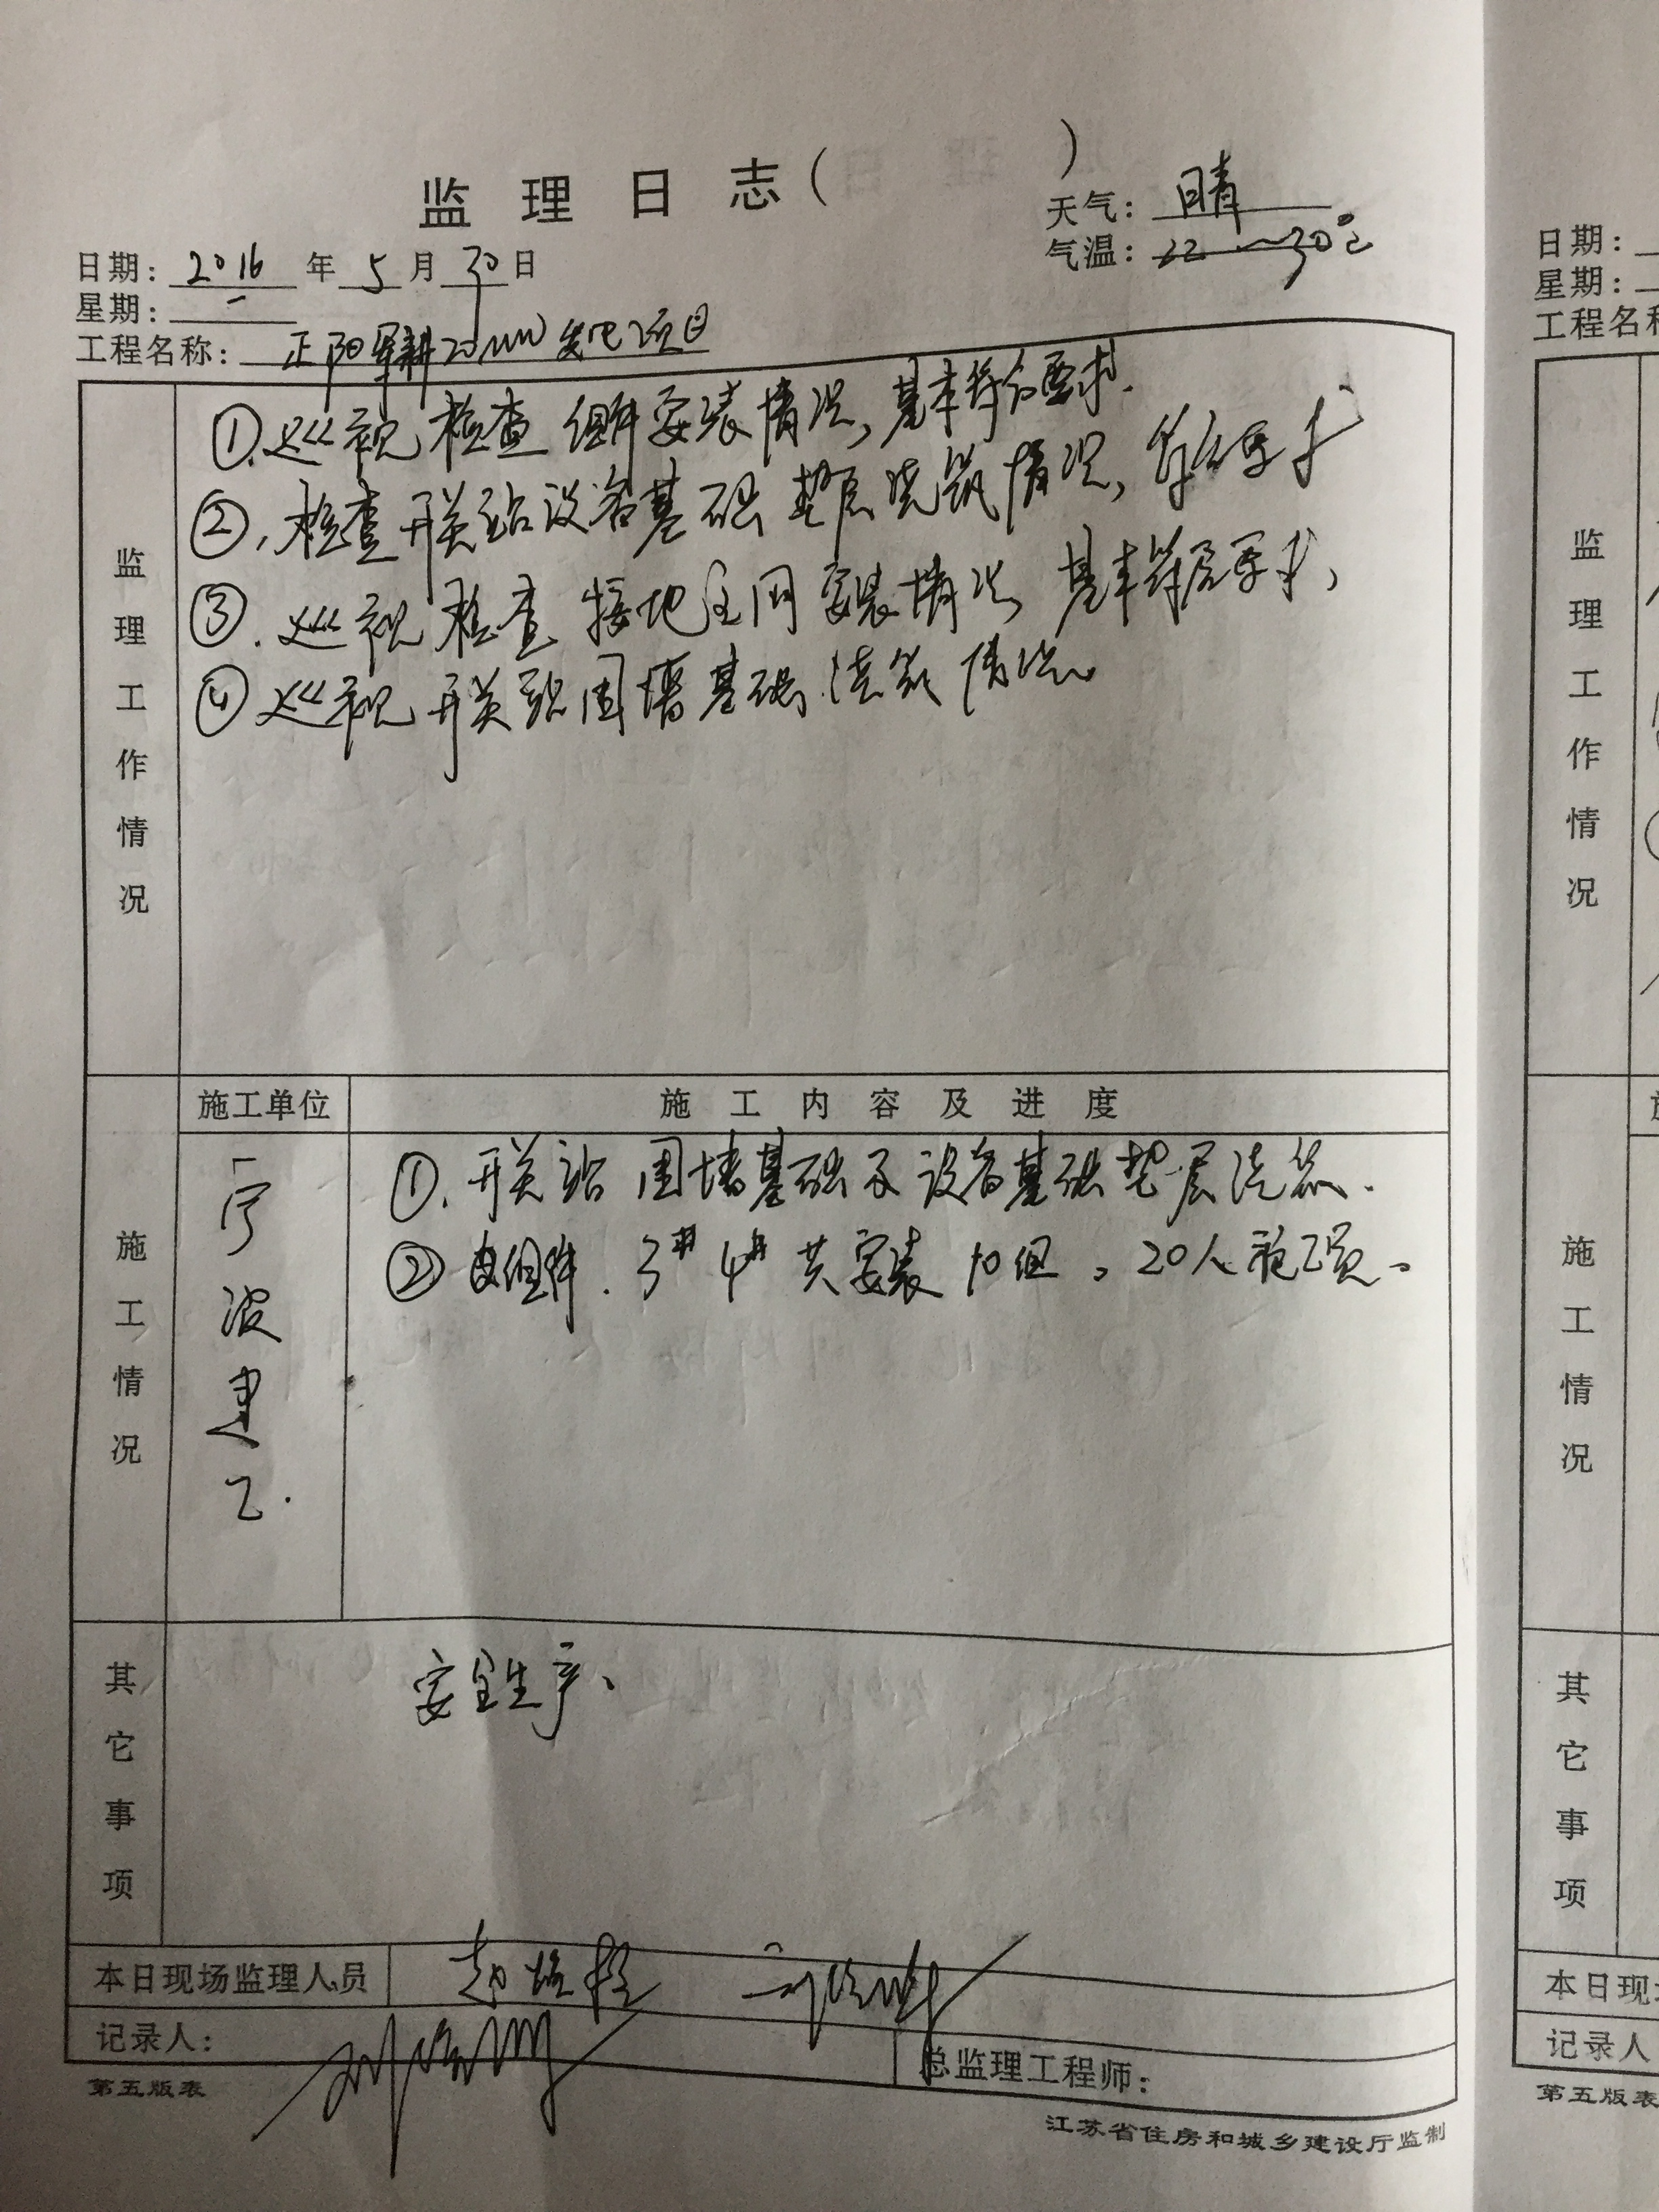 监理日志（ ）
天气：晴
日期：2016年5月30日
气温：22～30℃
星期：一
工程名称：正阳军耕20MW发电项目
监理工作情况
①.巡视检查组件安装情况，基本符合要求.
②，检查开关站设备基础垫层浇筑情况，符合要求
③.巡视检查接地主网安装情况，基本符合要求，
④巡视开关站围墙基础浇筑情况。
施工情况
施工单位
施工内容及进度
宁波建工.
①.开关站围墙基础及设备基础垫层浇筑.
②组件.3# 4#共安装10组，20人施工员。
其它事项
安全生产、
本日现场监理人员
记录人：
总监理工程师：
第五版表
江苏省住房和城乡建设厅监制
日期：
星期：
工程名称
监理工作情况
施工情况
其它事项
本日现场
记录人
第五版表